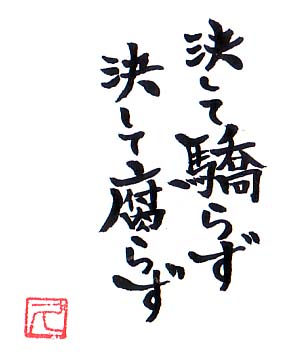 決して驕らず
決して腐らず